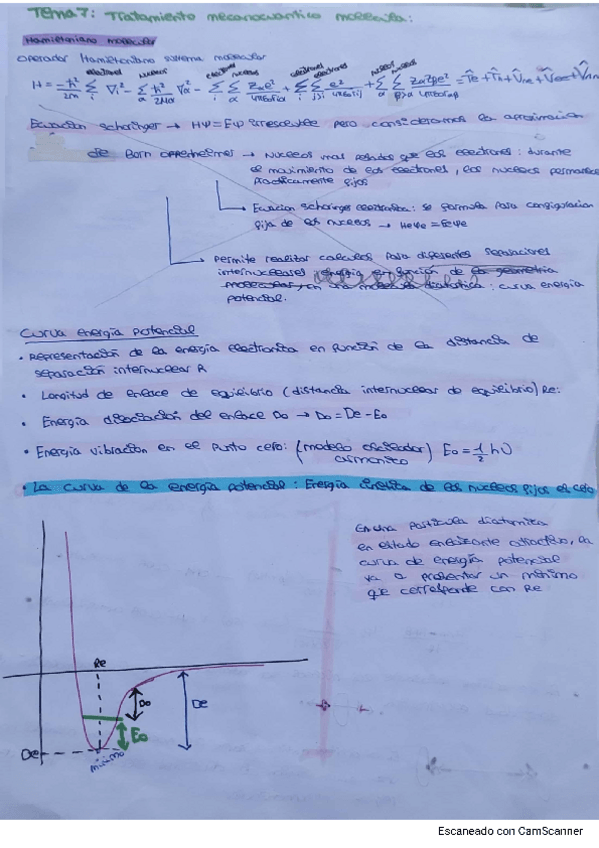 Tema 7: Tratamiento mecanocuantico molecular:
Hamiltoniano molecular
Operador Hamiltoniano sistema molecular
electrones nucleos electrones nucleos electrones electrones nucleos nucleos
H = -ħ²/2m Σi ∇i² - Σα ħ²/2Mα ∇α² - Σi Σα Zαe²/4πε0riα + Σi Σj>i e²/4πε0rij + Σα Σβ>α ZαZβe²/4πε0rαβ = T̂e + T̂n + V̂ne + V̂ee + V̂nn
Ecuacion schoringer → Hψ = Eψ irresoluble pero consideramos la aproximacion
de Born oppenheimer → Nucleos mas pesados que los electrones: durante
el movimiento de los electrones, los nucleos permanecen
practicamente fijos
Ecuacion schoringer electronica: se formula para configuracion
fija de los nucleos → Heψe = Eeψe
Permite realizar calculos para diferentes separaciones
internucleares energia en funcion de la geometria
molecular, en una molecula diatomica: curva energia
potencial.
Curva energia potencial
• Representación de la energia electronica en función de la distancia de
separación internuclear R
• Longitud de enlace de equilibrio (distancia internuclear de equilibrio) Re:
• Energia disociación del enlace Do → Do = De - Eo
• Energia vibracion en el punto cero: (modelo oscilador armonico) Eo = 1/2 hν
• La curva de la energia potencial: Energia cinetica de los nucleos fijos es cero
En una particula diatomica
en estado enlazante atractivo, la
curva de energia potencial
va a presentar un minimo
que corresponde con Re
Re
Do
De
Eo
De
minimo
Escaneado con CamScanner